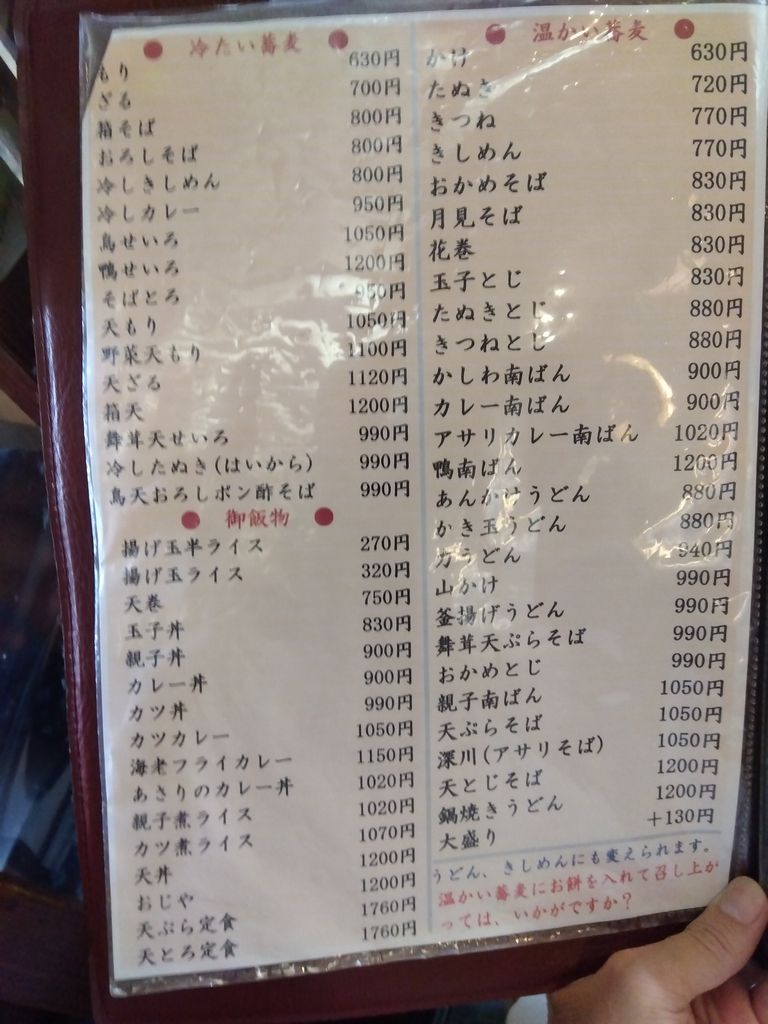 ● 冷たい蕎麦 ●
もり 630円
ざる 700円
箱そば 800円
おろしそば 800円
冷しきしめん 800円
冷しカレー 950円
鳥せいろ 1050円
鴨せいろ 1200円
そばとろ 950円
天もり 1050円
野菜天もり 1100円
天ざる 1120円
箱天 1200円
舞茸天せいろ 990円
冷したぬき(はいから) 990円
鳥天おろしポン酢そば 990円
● 御飯物 ●
揚げ玉半ライス 270円
揚げ玉ライス 320円
天巻 750円
玉子丼 830円
親子丼 900円
カレー丼 900円
カツ丼 990円
カツカレー 1050円
海老フライカレー 1150円
あさりのカレー丼 1020円
親子煮ライス 1020円
カツ煮ライス 1070円
天丼 1200円
おじや 1200円
天ぷら定食 1760円
天とろ定食 1760円
● 温かい蕎麦 ●
かけ 630円
たぬき 720円
きつね 770円
きしめん 770円
おかめそば 830円
月見そば 830円
花巻 830円
玉子とじ 830円
たぬきとじ 880円
きつねとじ 880円
かしわ南ばん 900円
カレー南ばん 900円
アサリカレー南ばん 1020円
鴨南ばん 1200円
あんかけうどん 880円
かき玉うどん 880円
力うどん 940円
山かけ 990円
釜揚げうどん 990円
舞茸天ぷらそば 990円
おかめとじ 990円
親子南ばん 1050円
天ぷらそば 1050円
深川(アサリそば) 1050円
天とじそば 1200円
鍋焼きうどん 1200円
大盛り +130円
うどん、きしめんにも変えられます。
温かい蕎麦にお餅を入れて召し上が
っては、いかがですか?